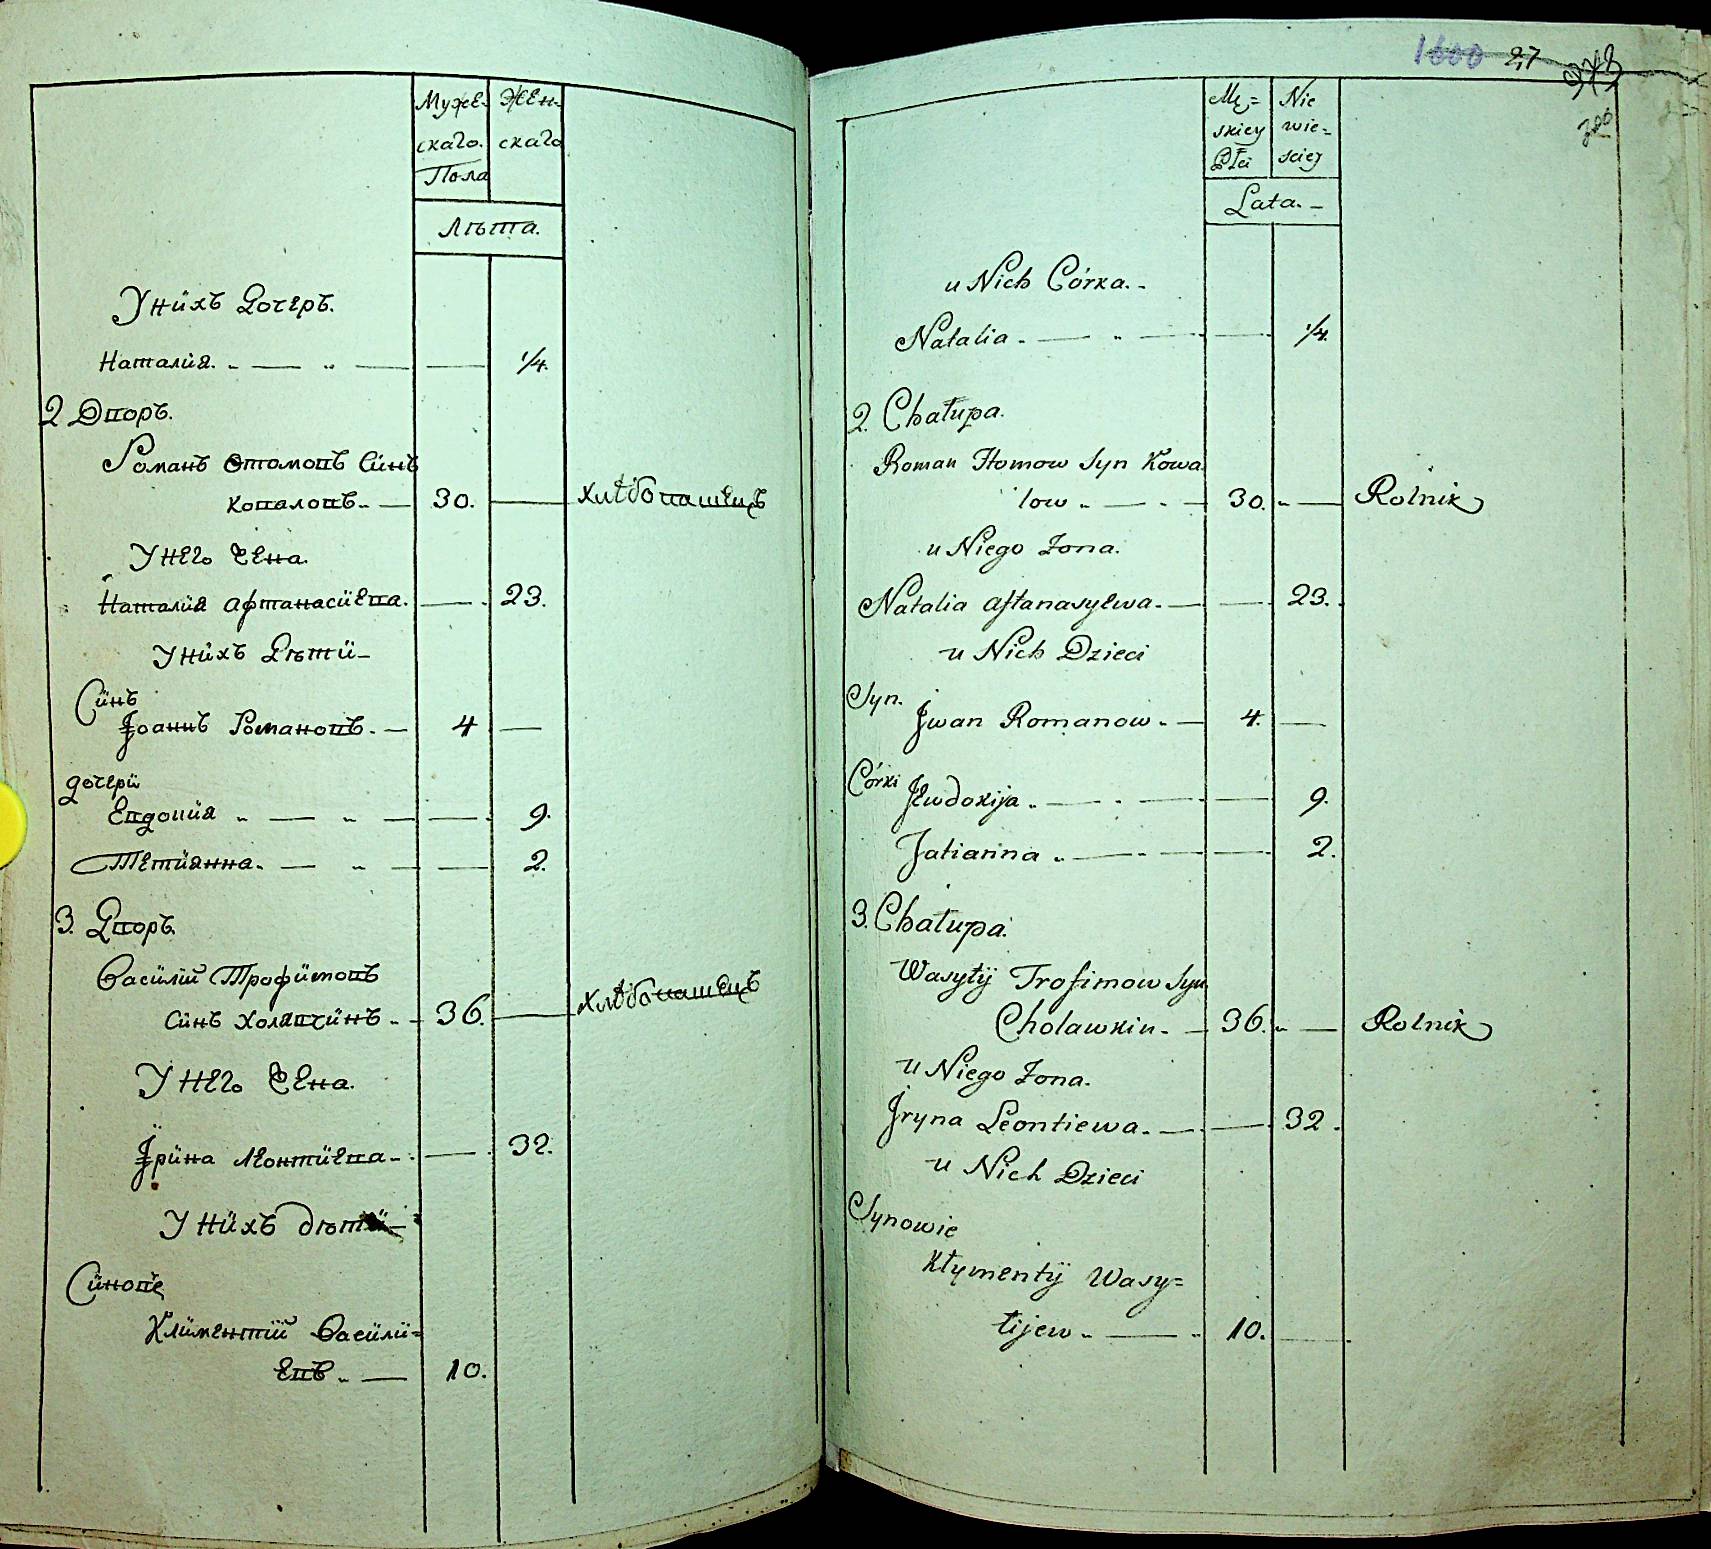 Муже- Жен-
скаго. скаго
Пола
Лѣта.
Унïхъ Дочеръ.
Наталïя. 1/4.
2 Дворъ.
Романъ Ѳтомовъ Сïнъ
Коваловъ 30. хлѣбопашецъ
Унего жена.
Наталïя Афтанасïева. 23.
Унïхъ Дѣтï
Сïнъ
Іоаннъ Романовъ. 4
дочерï
Евдокïя 9.
Тетïянна. 2.
3. Дворъ.
Васïлïй Трофïмовъ
Сïнъ Холявчïнъ 36. хлѣбопашецъ
Унего жена.
Їрïна Леонтïева 32.
Унïхъ дѣтï
Сïнове
Клïментïй Васïлï=
евъ 10.
1600 27
Mę= Nie
skiey wie=
Płci sciey
Lata.
u Nich Córka.
Natalia 1/4.
2. Chałupa.
Roman Htomow Syn Kowa
low 30. Rolnik
u Niego Zona.
Natalia Aftanasyewa. 23.
u Nich Dzieci
Syn.
Jwan Romanow 4.
Córki
Jewdokija 9.
Tatianna 2.
3. Chałupa.
Wasyłÿ Trofimow Syn
Cholawkin 36. Rolnik
u Niego Zona.
Jryna Leontiewa. 32.
u Nich Dzieci
Synowie
Kłymentÿ Wasy=
łijew 10.